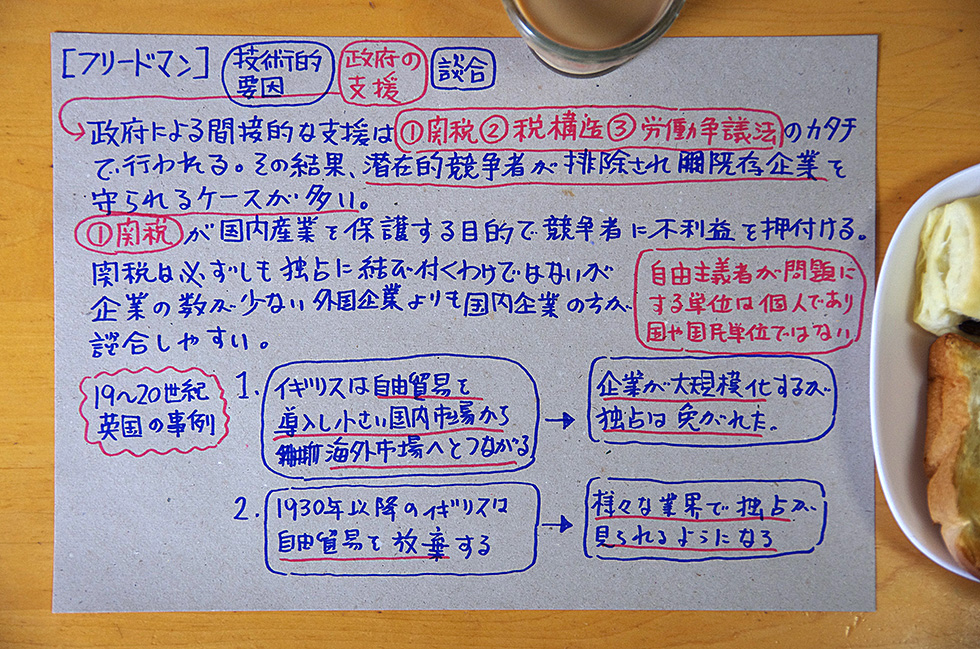 [フリードマン] 技術的要因 政府の支援 談合
政府による間接的な支援は①関税②税構造③労働争議法のカタチ
で行われる。その結果、潜在的競争者が排除され既存企業を
守られるケースが多い。
①関税が国内産業を保護する目的で競争者に不利益を押付ける。
関税は必ずしも独占に結び付くわけではないが
企業の数が少ない外国企業よりも国内企業の方が
談合しやすい。
自由主義者が問題に
する単位は個人であり
国や国民単位ではない
19〜20世紀
英国の事例
1. イギリスは自由貿易を
導入し小さい国内市場から
海外市場へとつながる
→
企業が大規模化するが
独占は免がれた。
2. 1930年以降のイギリスは
自由貿易を放棄する
→
様々な業界で独占が
見られるようになる